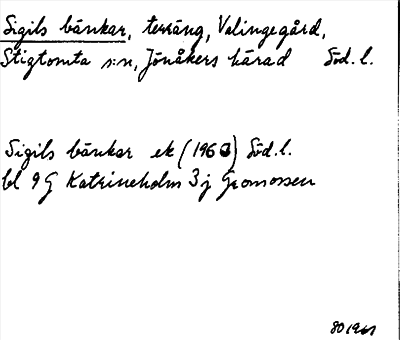 Sigils bänkar, terräng, Valinge gård,
Stigtomta s:n, Jönåkers härad Söd. l.
Sigils bänkar ek (1960) Söd. l.
bl 9 G Katrineholm 3 j Gromossen